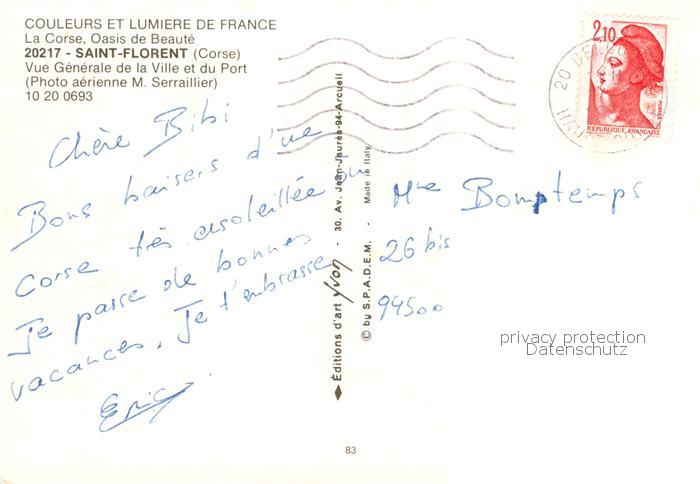 COULEURS ET LUMIERE DE FRANCE
La Corse, Oasis de Beauté
20217 - SAINT-FLORENT (Corse)
Vue Générale de la Ville et du Port
(Photo aérienne M. Serraillier)
10 20 0693
Chère Bibi
Bons baisers d'une
Corse très ensoleillée où
Je passe de bonnes
vacances. Je t'embrasse
Eric
Editions d'art yvon - 30, Av. Jean-Jaurès-94-Arcueil
© by S.P.A.D.E.M. - Made in Italy
83
2,10
REPUBLIQUE FRANÇAISE
POSTES
20
HAU
Mme Bomptemps
26 bis
94500
privacy protection
Datenschutz